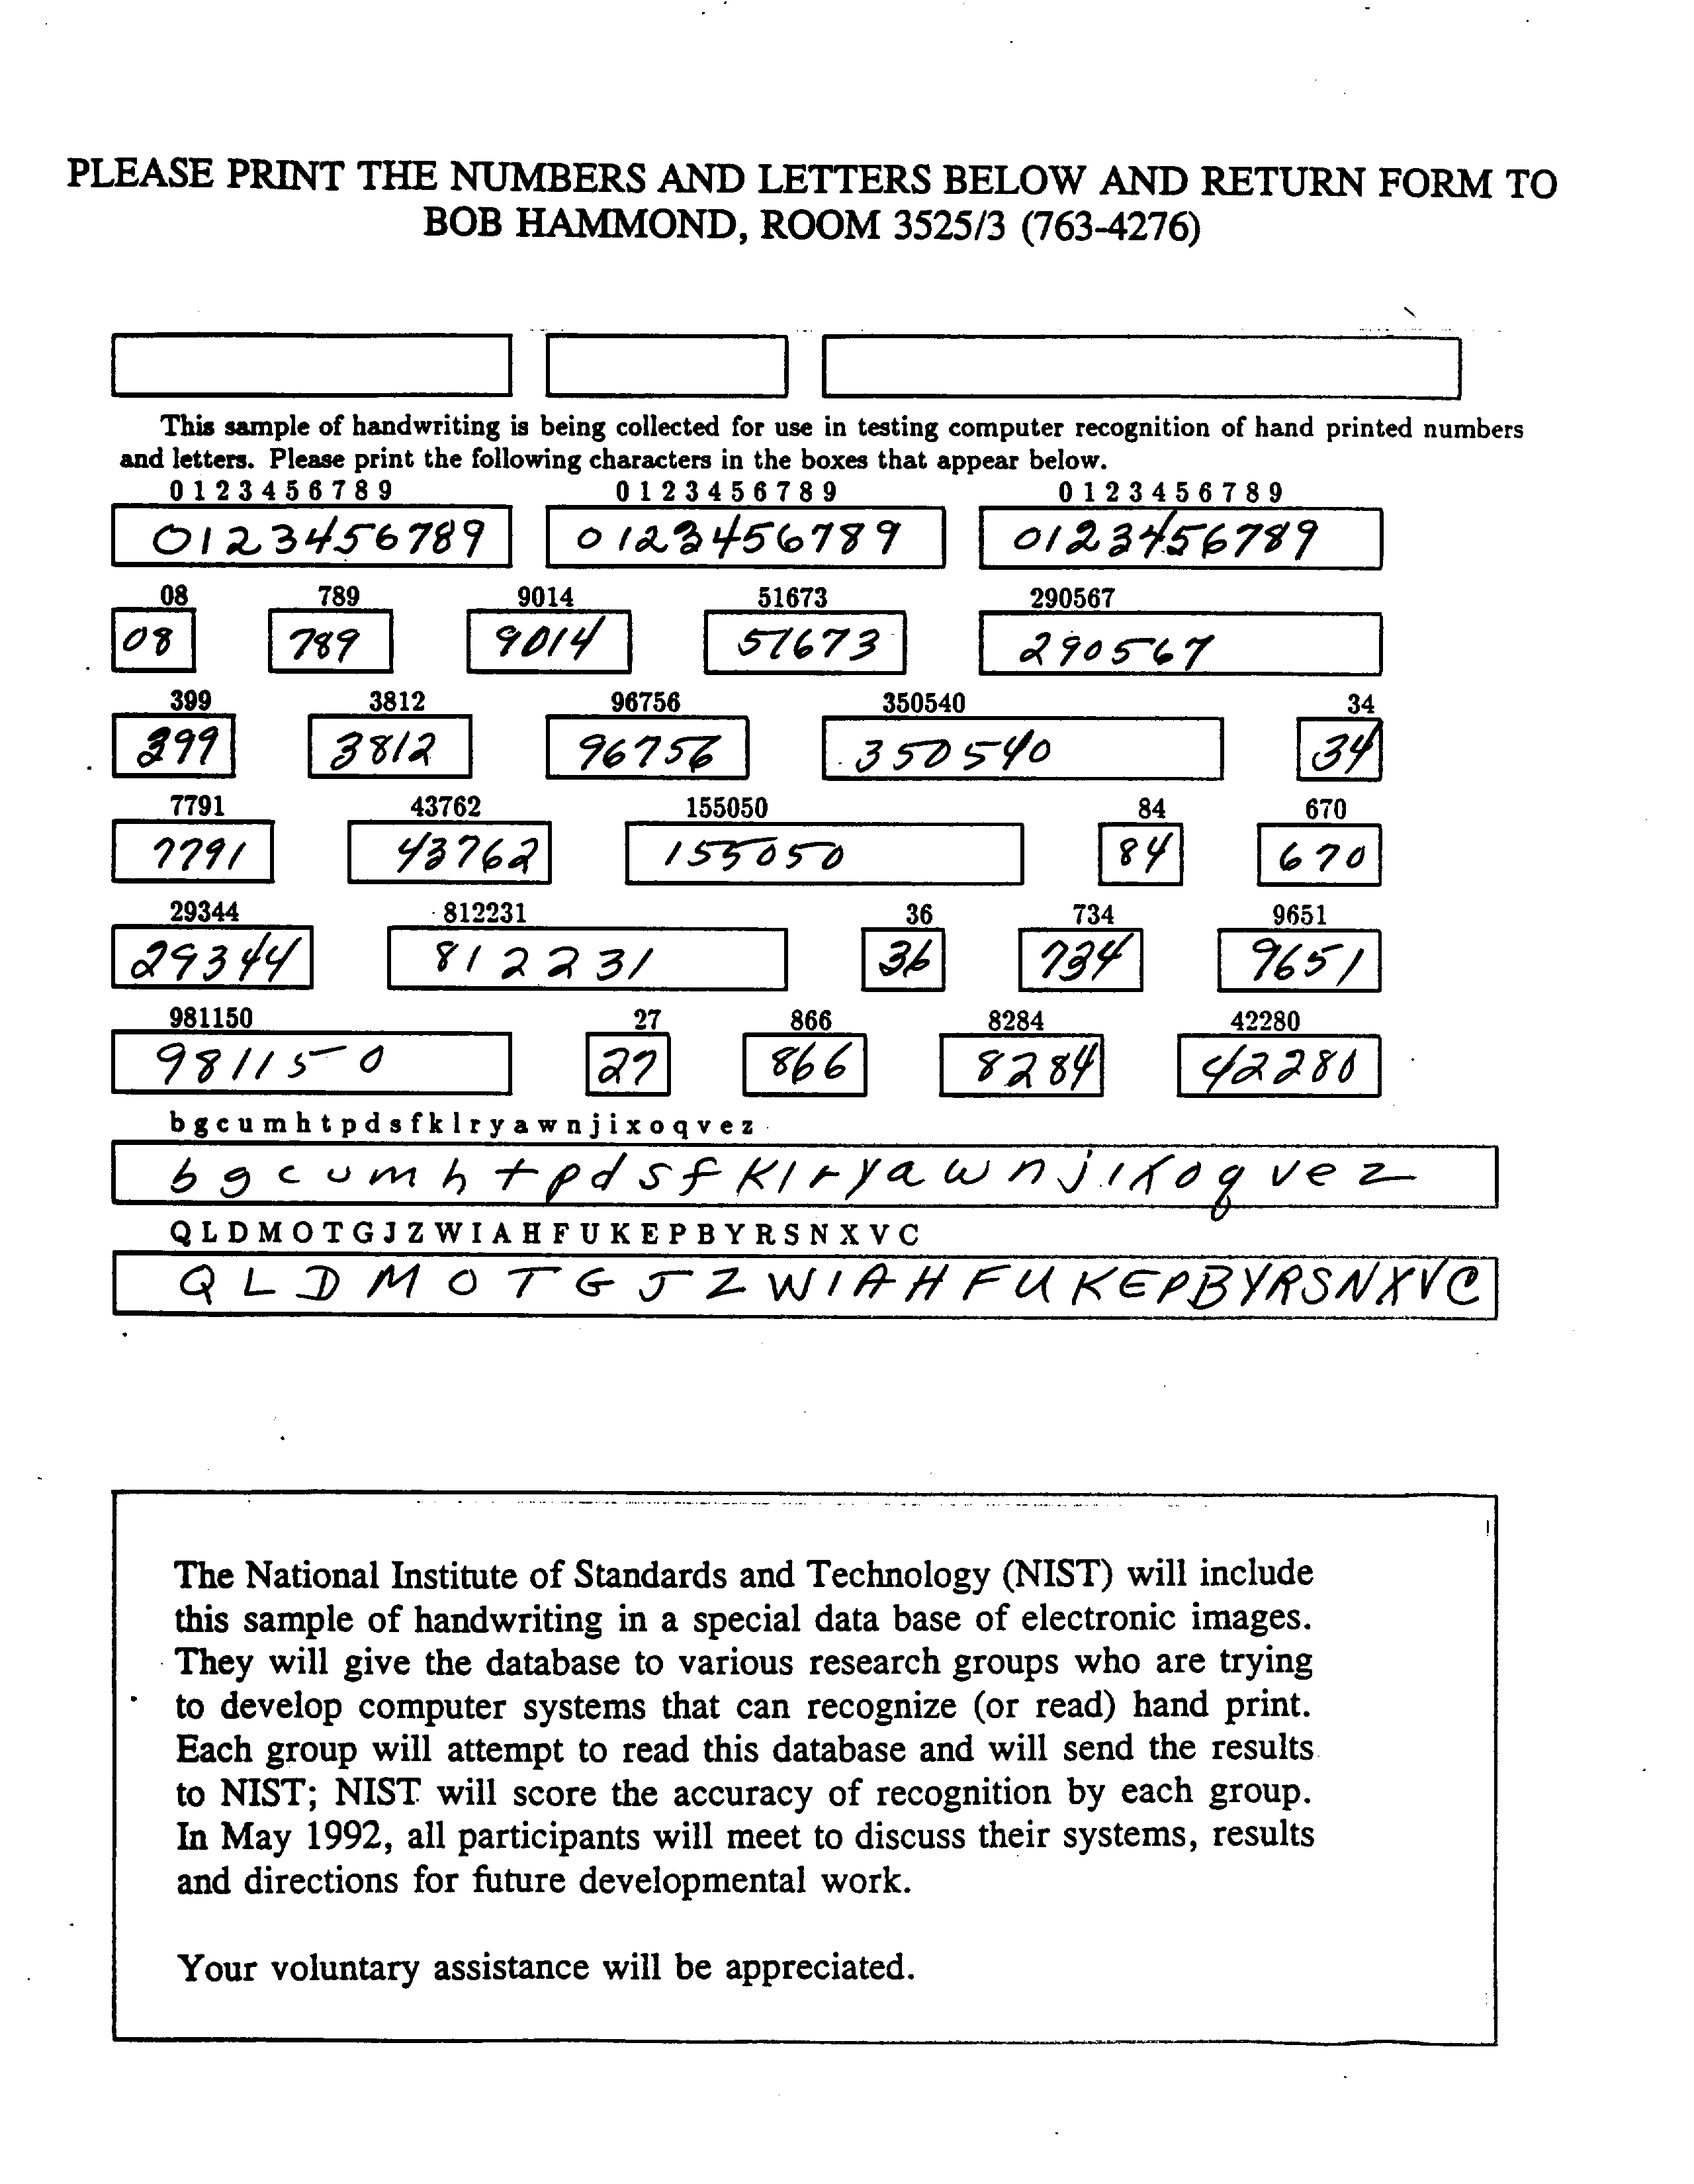 PLEASE PRINT THE NUMBERS AND LETTERS BELOW AND RETURN FORM TO
BOB HAMMOND, ROOM 3525/3 (763-4276)
This sample of handwriting is being collected for use in testing computer recognition of hand printed numbers
and letters. Please print the following characters in the boxes that appear below.
0 1 2 3 4 5 6 7 8 9 0 1 2 3 4 5 6 7 8 9 0 1 2 3 4 5 6 7 8 9
0123456789 0123456789 0123456789
08 789 9014 51673 290567
08 789 9014 51673 290567
399 3812 96756 350540 34
399 3812 96756 350540 34
7791 43762 155050 84 670
7791 43762 155050 84 670
29344 812231 36 734 9651
29344 812231 36 734 9651
981150 27 866 8284 42280
981150 27 866 8284 42280
b g c u m h t p d s f k l r y a w n j i x o q v e z
b g c u m h t p d s f k l r y a w n j i x o q v e z
Q L D M O T G J Z W I A H F U K E P B Y R S N X V C
Q L D M O T G J Z W I A H F U K E P B Y R S N X V C
The National Institute of Standards and Technology (NIST) will include
this sample of handwriting in a special data base of electronic images.
They will give the database to various research groups who are trying
to develop computer systems that can recognize (or read) hand print.
Each group will attempt to read this database and will send the results
to NIST; NIST will score the accuracy of recognition by each group.
In May 1992, all participants will meet to discuss their systems, results
and directions for future developmental work.
Your voluntary assistance will be appreciated.